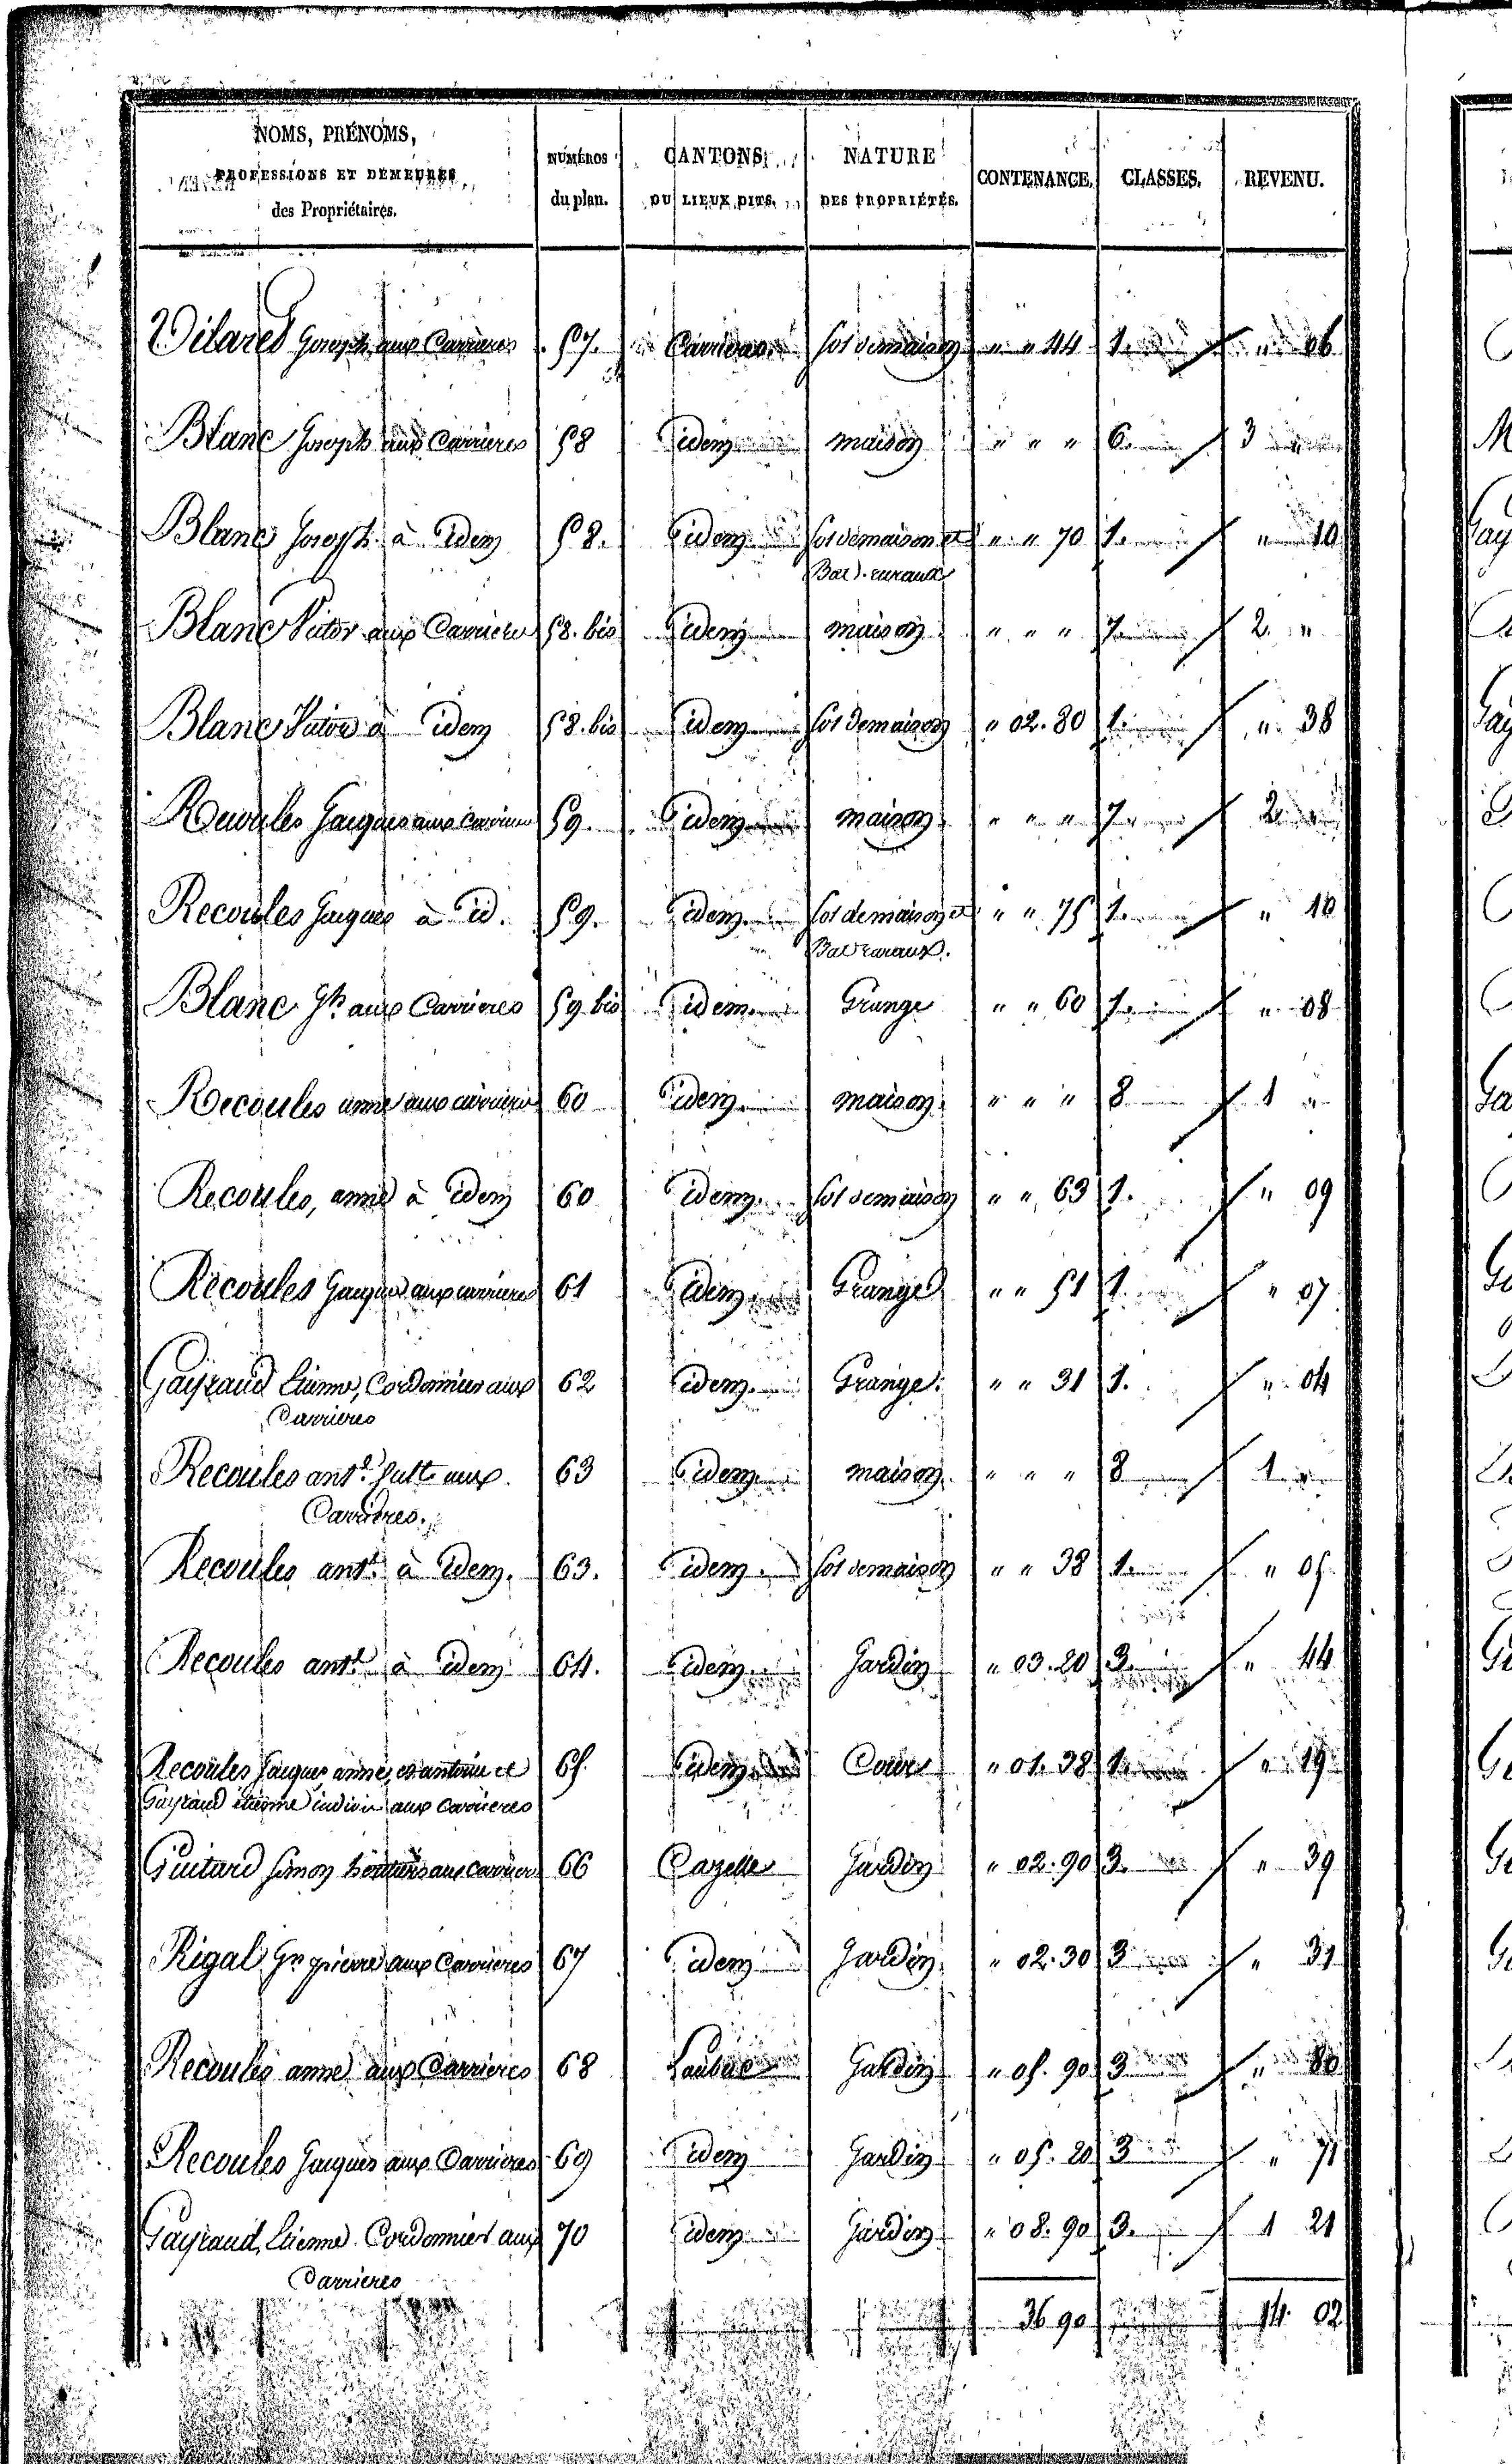 NOMS, PRÉNOMS, PROFESSIONS ET DEMEURES des Propriétaires. NUMÉROS du plan. CANTONS OU LIEUX DITS. NATURE DES PROPRIÉTÉS. CONTENANCE. CLASSES. REVENU.
Vilaret Joseph aux Carrieres 57. Carrieres. Sol de maison " " 44 1. " 06
Blanc Joseph aux Carrieres 58 idem maison " " " 6. 3 "
Blanc Joseph à idem 58. idem Sol de maison et " " 70 1. " 10
Bat. ruraux
Blanc Victor aux Carrieres 58. bis idem maison " " " 7 2. "
Blanc Victor à idem 58. bis idem Sol de maison " 02. 80 1. " 38
Recoules Jacques aux Carrieres 59. idem maison " " " 7 2 "
Recoules Jacques à id. 59. idem. Sol de maison et " " 75 1. " 10
Bat ruraux.
Blanc Jh aux Carrieres 59 bis idem Grange " " 60 1. " 08
Recoules anne aux carrieres 60 idem. maison " " " 8 1 "
Recoules, anne à idem 60 idem. Sol de maison " " 63 1. " 09
Recoules Jacques aux carrieres 61 idem. Grange " " 51 1. " 07
Gayraud Etienne, Cordonnier aux 62 idem. Grange. " " 31 1. " 04
Carrieres
Recoules ant.e aux 63 idem maison. " " " 8 1 "
Carrieres.
Recoules ant.e à idem. 63. idem. Sol de maison " " 38 1. " 05
Recoules ant.e à idem 64. idem. Jardin " 03. 20 3. " 44
Recoules Jacques anne, et antoine et 65. idem Cour " 01. 38 1. " 19
Gayraud etienne indivis aux Carrieres
Guitard Simon aux Carrieres 66 Cazelle Jardin " 02. 90 3. " 39
Rigal Jn pierre aux Carrieres 67 idem Jardin " 02. 30 3 " 31
Recoules anne aux Carrieres 68 Jardin " 05. 90 3 " 80
Recoules Jacques aux Carrieres 69 idem Jardin " 05. 20 3 " 71
Gayraud, Etienne Cordonnier aux 70 idem Jardin " 08. 90 3. 1 21
Carrieres
36 90 14. 02